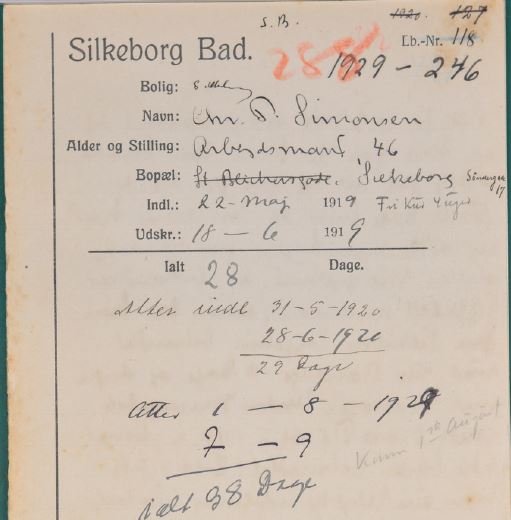 S.B.
1920. 127
Silkeborg Bad.
Lb.-Nr. 118
288
1929 - 246
Bolig:
Navn: Chr. P. Simonsen
Alder og Stilling: Arbejdsmand 46
Bopæl: St Blichersgade. Silkeborg Søndergade 17
Indl.: 22 - Maj 1919 Fri Kur 4 Uger
Udskr.: 18 - 6 1919
Ialt 28 Dage.
Atter indl 31-5-1920
28-6-1920
29 Dage
Atter 1 - 8 - 1929
7 - 9
ialt 38 Dage
Kom 1ste August